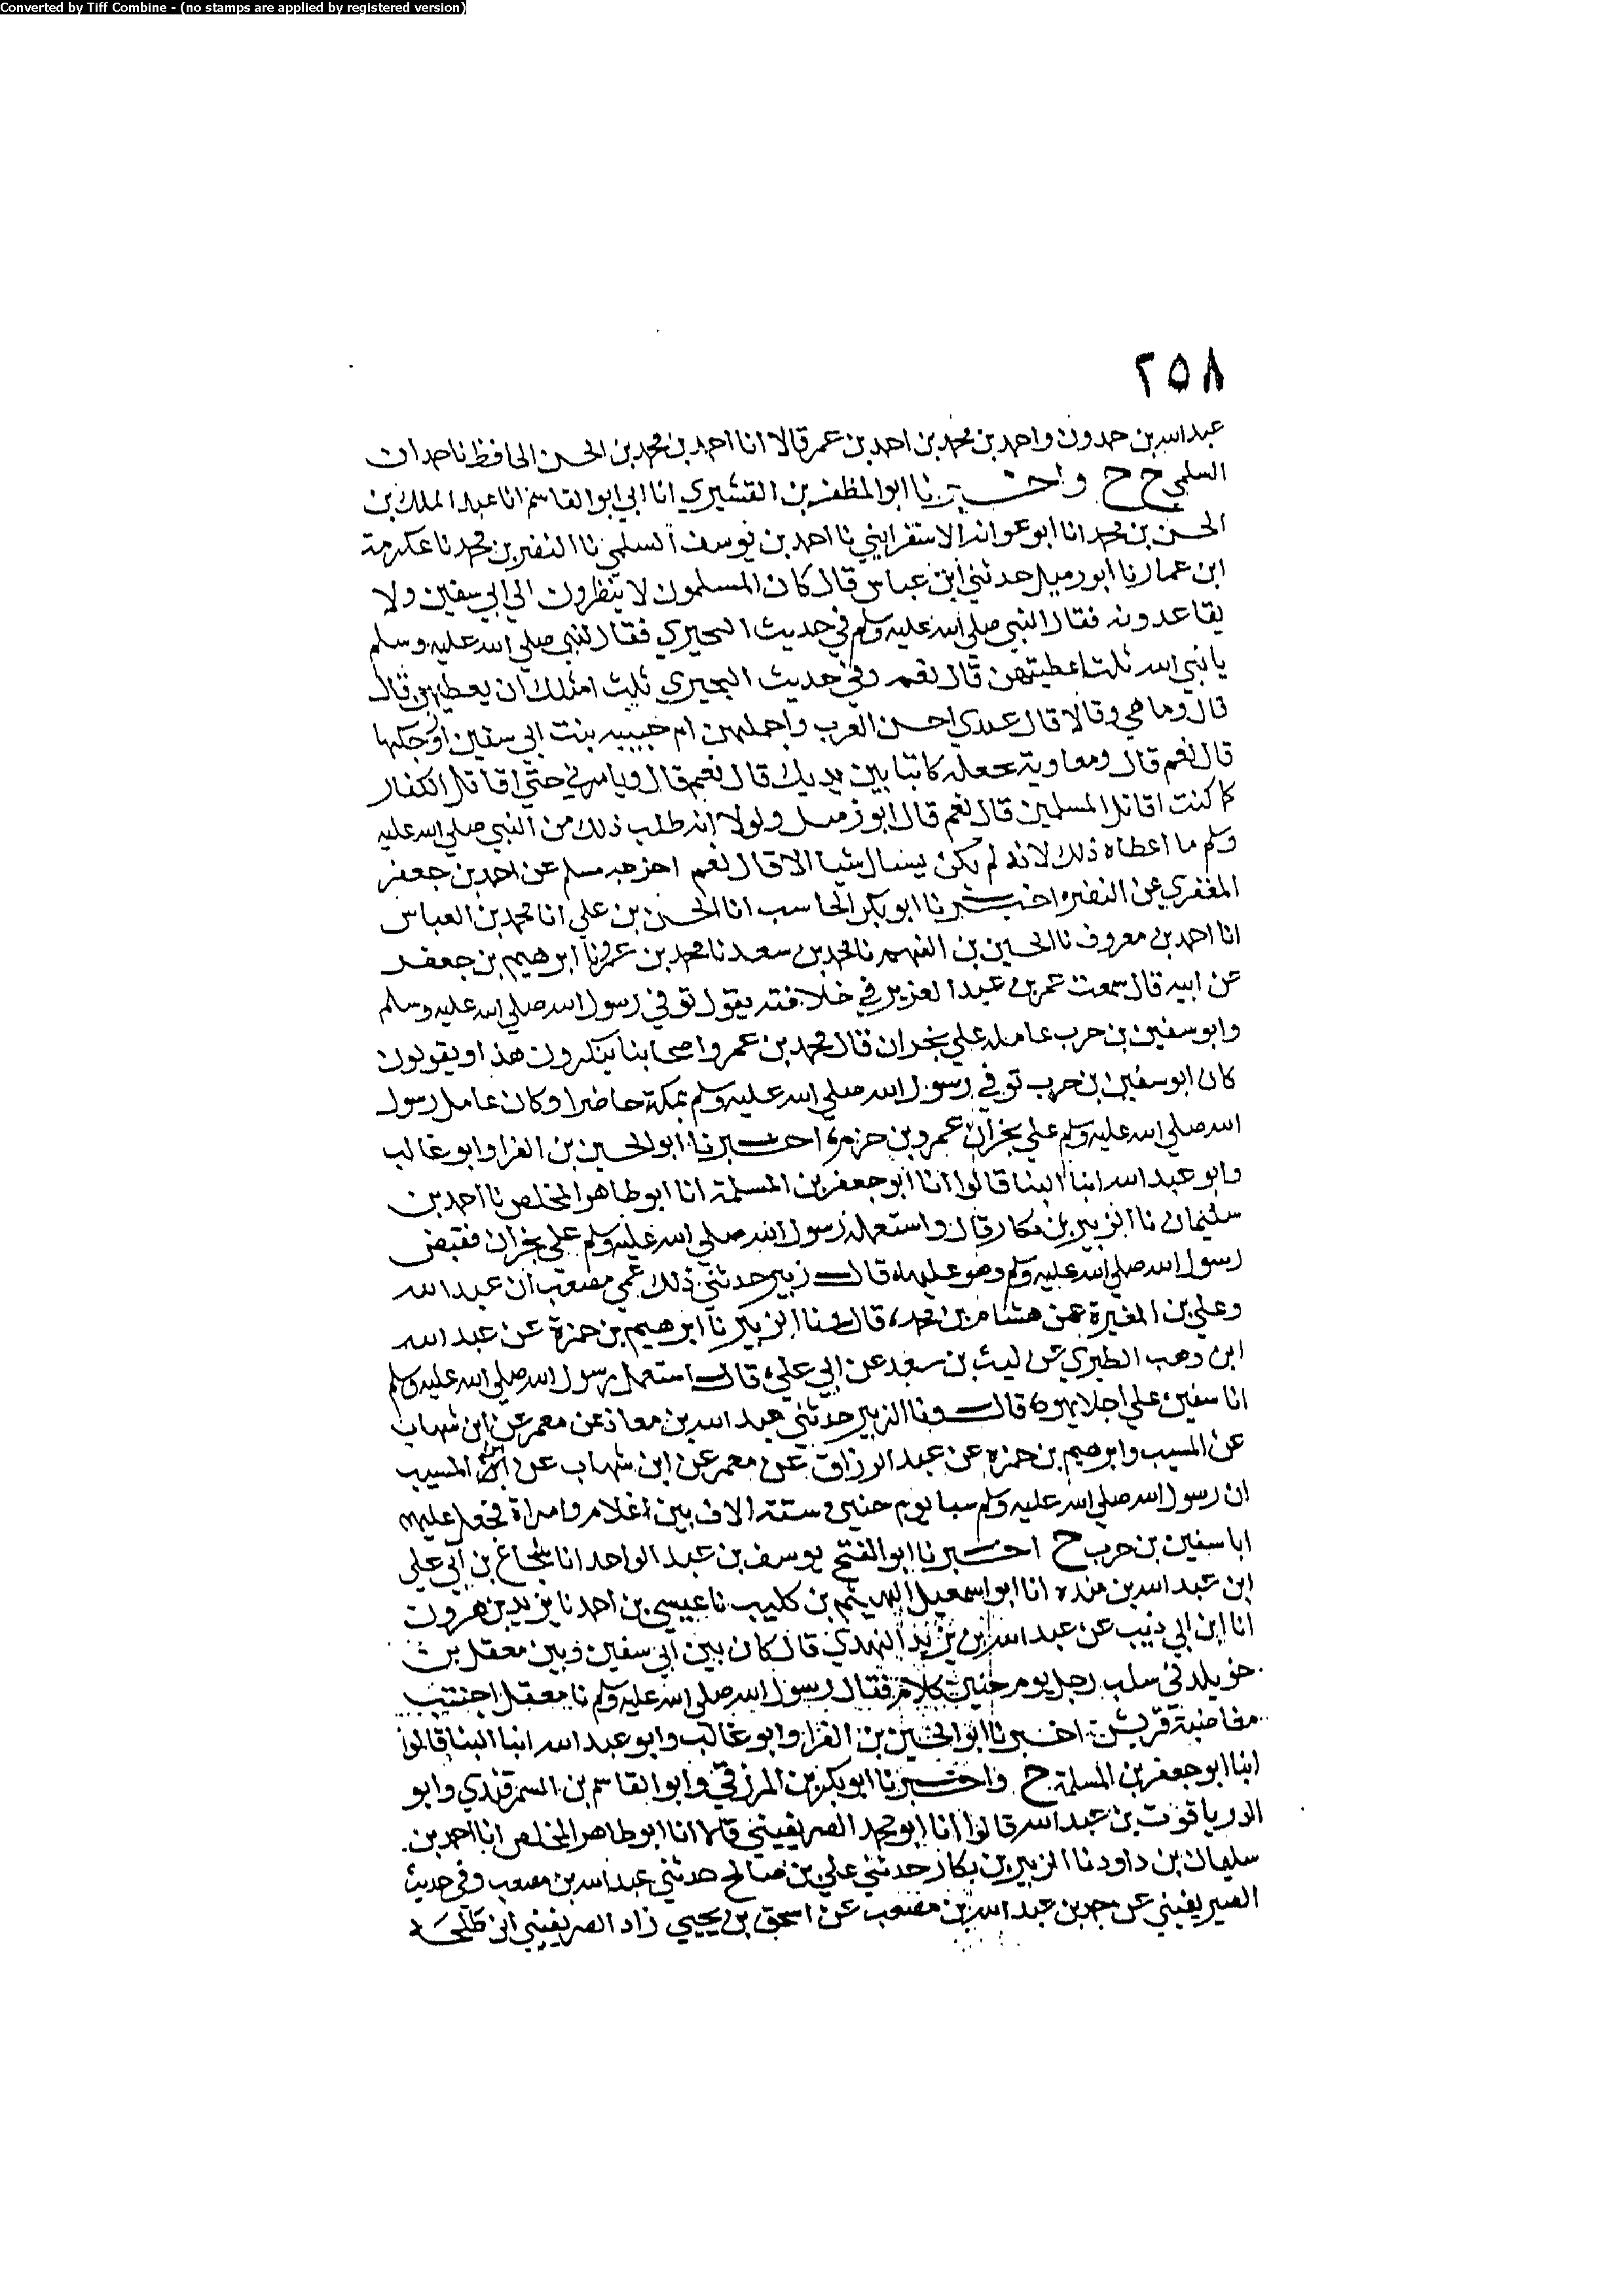 Converted by Tiff Combine - (no stamps are applied by registered version)
٢٥٨
عبدالله بن حمدون واحمد بن محمد بن احمد بن عمر قالا انا احمد بن محمد بن الحسن الحافظ نا حمدان
السلمي ح ح واخبرنا ابوالمظفر بن القشيري انا ابي ابوالقاسم انا عبد الملك بن
الحسن بن محمد انا ابوعوانه الاسفرايني نا احمد بن يوسف السلمي نا النضر بن محمد نا عكرمة
ابن عمار نا ابوزميل حدثني ابن عباس قال كان المسلمون لا ينظرون الي ابي سفين ولا
يقاعدونه فقال النبي صلي الله عليه وسلم في حديث البحيري فقال للنبي صلي الله عليه وسلم
يا نبي الله ثلث اعطيتهن قال نعم وفي حديث البحيري ثلث اسئلك ان يعطيهن قال
قال وما هي وقالا قال عندي احسن العرب واجملهن ام حبيبه بنت ابي سفين ازوجكها
قال نعم قال ومعاوية تجعله كاتبا بين يديك قال نعم قال ويامرني حتي اقاتل الكفار
كما كنت اقاتل المسلمين قال نعم قال ابوزميل ولولا انه طلب ذلك من النبي صلي الله عليه
وسلم ما اعطاه ذلك لانه لم يكن يسال شيا الا قال نعم اخرجه مسلم عن احمد بن جعفر
المغفري عن النضر اخبرنا ابوبكر الحاسب انا الحسن بن علي انا محمد بن العباس
انا احمد بن معروف نا الحسين بن الفهم نا محمد بن سعد نا محمد بن عمر نا ابرهيم بن جعفر
عن ابيه قال سمعت عمر بن عبد العزيز في خلافته يقول توفي رسول الله صلي الله عليه وسلم
وابوسفين بن حرب عامله علي نجران قال محمد بن عمر واصحابنا ينكرون هذا ويقولون
كان ابوسفين بن حرب توفي رسول الله صلي الله عليه وسلم بمكة حاضرا وكان عامل رسول
الله صلي الله عليه وسلم علي نجران عمرو بن حزم اخبرنا ابوالحسين بن الفرا وابوغالب
وابوعبد الله ابنا البنا قالوا انا ابوجعفر بن المسلمة انا ابوطاهر المخلص نا احمد بن
سليمان نا الزبير بن بكار قال واستعمله رسول الله صلي الله عليه وسلم علي نجران فقبض
رسول الله صلي الله عليه وسلم وهو عليها قال زبير حدثني ذلك عمي مصعب بن عبد الله
وعلي بن المغيرة عن هشام بن محمد قال ونا الزبير نا ابرهيم بن حمزة عن عبد الله
ابن وهب الطبري عن ليث بن سعد عن ابي علي قال استعمل رسول الله صلي الله عليه وسلم
ابا سفين علي اجلا يهود قال ونا الزبير حدثني عبد الله بن معاذ عن معمر عن ابن شهاب
عن المسيب وابرهيم بن حمزه عن عبد الرزاق عن معمر عن ابن شهاب عن ابن المسيب
ان رسول الله صلي الله عليه وسلم سبا يوم حنين ستة الاف بين غلام وامراة فجعل عليهم
ابا سفين بن حرب ح اخبرنا ابوالفتح يوسف بن عبد الواحد انا شجاع بن ابي علي
ابن عبد الله بن منده انا ابو الهيثم بن كليب نا عيسي بن احمد نا يزيد بن هرون
انا ابن ابي ذيب عن عبد الله بن يزيد الهذلي قال كان بين ابي سفين وبين معقل بن
خويلد في سلب رجل يوم حنين كلام فقال رسول الله صلي الله عليه وسلم يا معقل اجتنب
مغاضبة قريش اخبرنا ابوالحسين بن الفرا وابوغالب وابوعبد الله ابنا البنا قالوا
ابنا ابوجعفر بن المسلمة ح واخبرنا ابوبكر بن المزرقي وابوالقاسم بن السمرقندي وابو
الدر ياقوت بن عبد الله قالوا انا ابومحمد الصريفيني قالا انا ابوطاهر المخلص انا احمد بن
سليمان بن داود نا الزبير بن بكار حدثني علي بن صالح حدثني عبد الله بن مصعب وفي حديث
الصيريفيني عن جد بن عبد الله بن مصعب عن اسحق بن يحيي زاد الصريفيني ابن طلحة